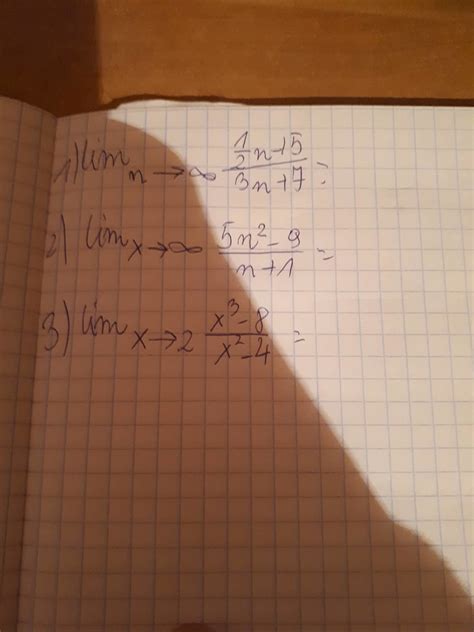 1) lim n→∞ (1/2 n+5)/(3n+7) =
2) lim x→∞ (5n²-9)/(n+1) =
3) lim x→2 (x³-8)/(x²-4) =